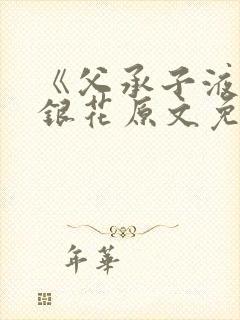 《父承子液
銀花原文免
年華